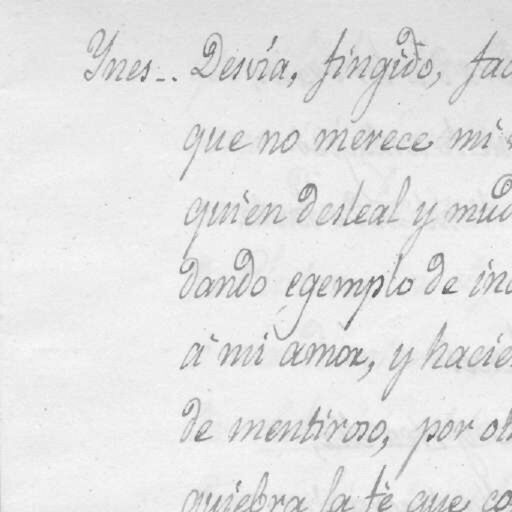 Ynes.. Desvia, fingido, fac
que no merece mi
quien desleal y mud
dando egemplo de inc
á mi amor, y hacien
de mentiroso, por ot
quiebra la fé que co